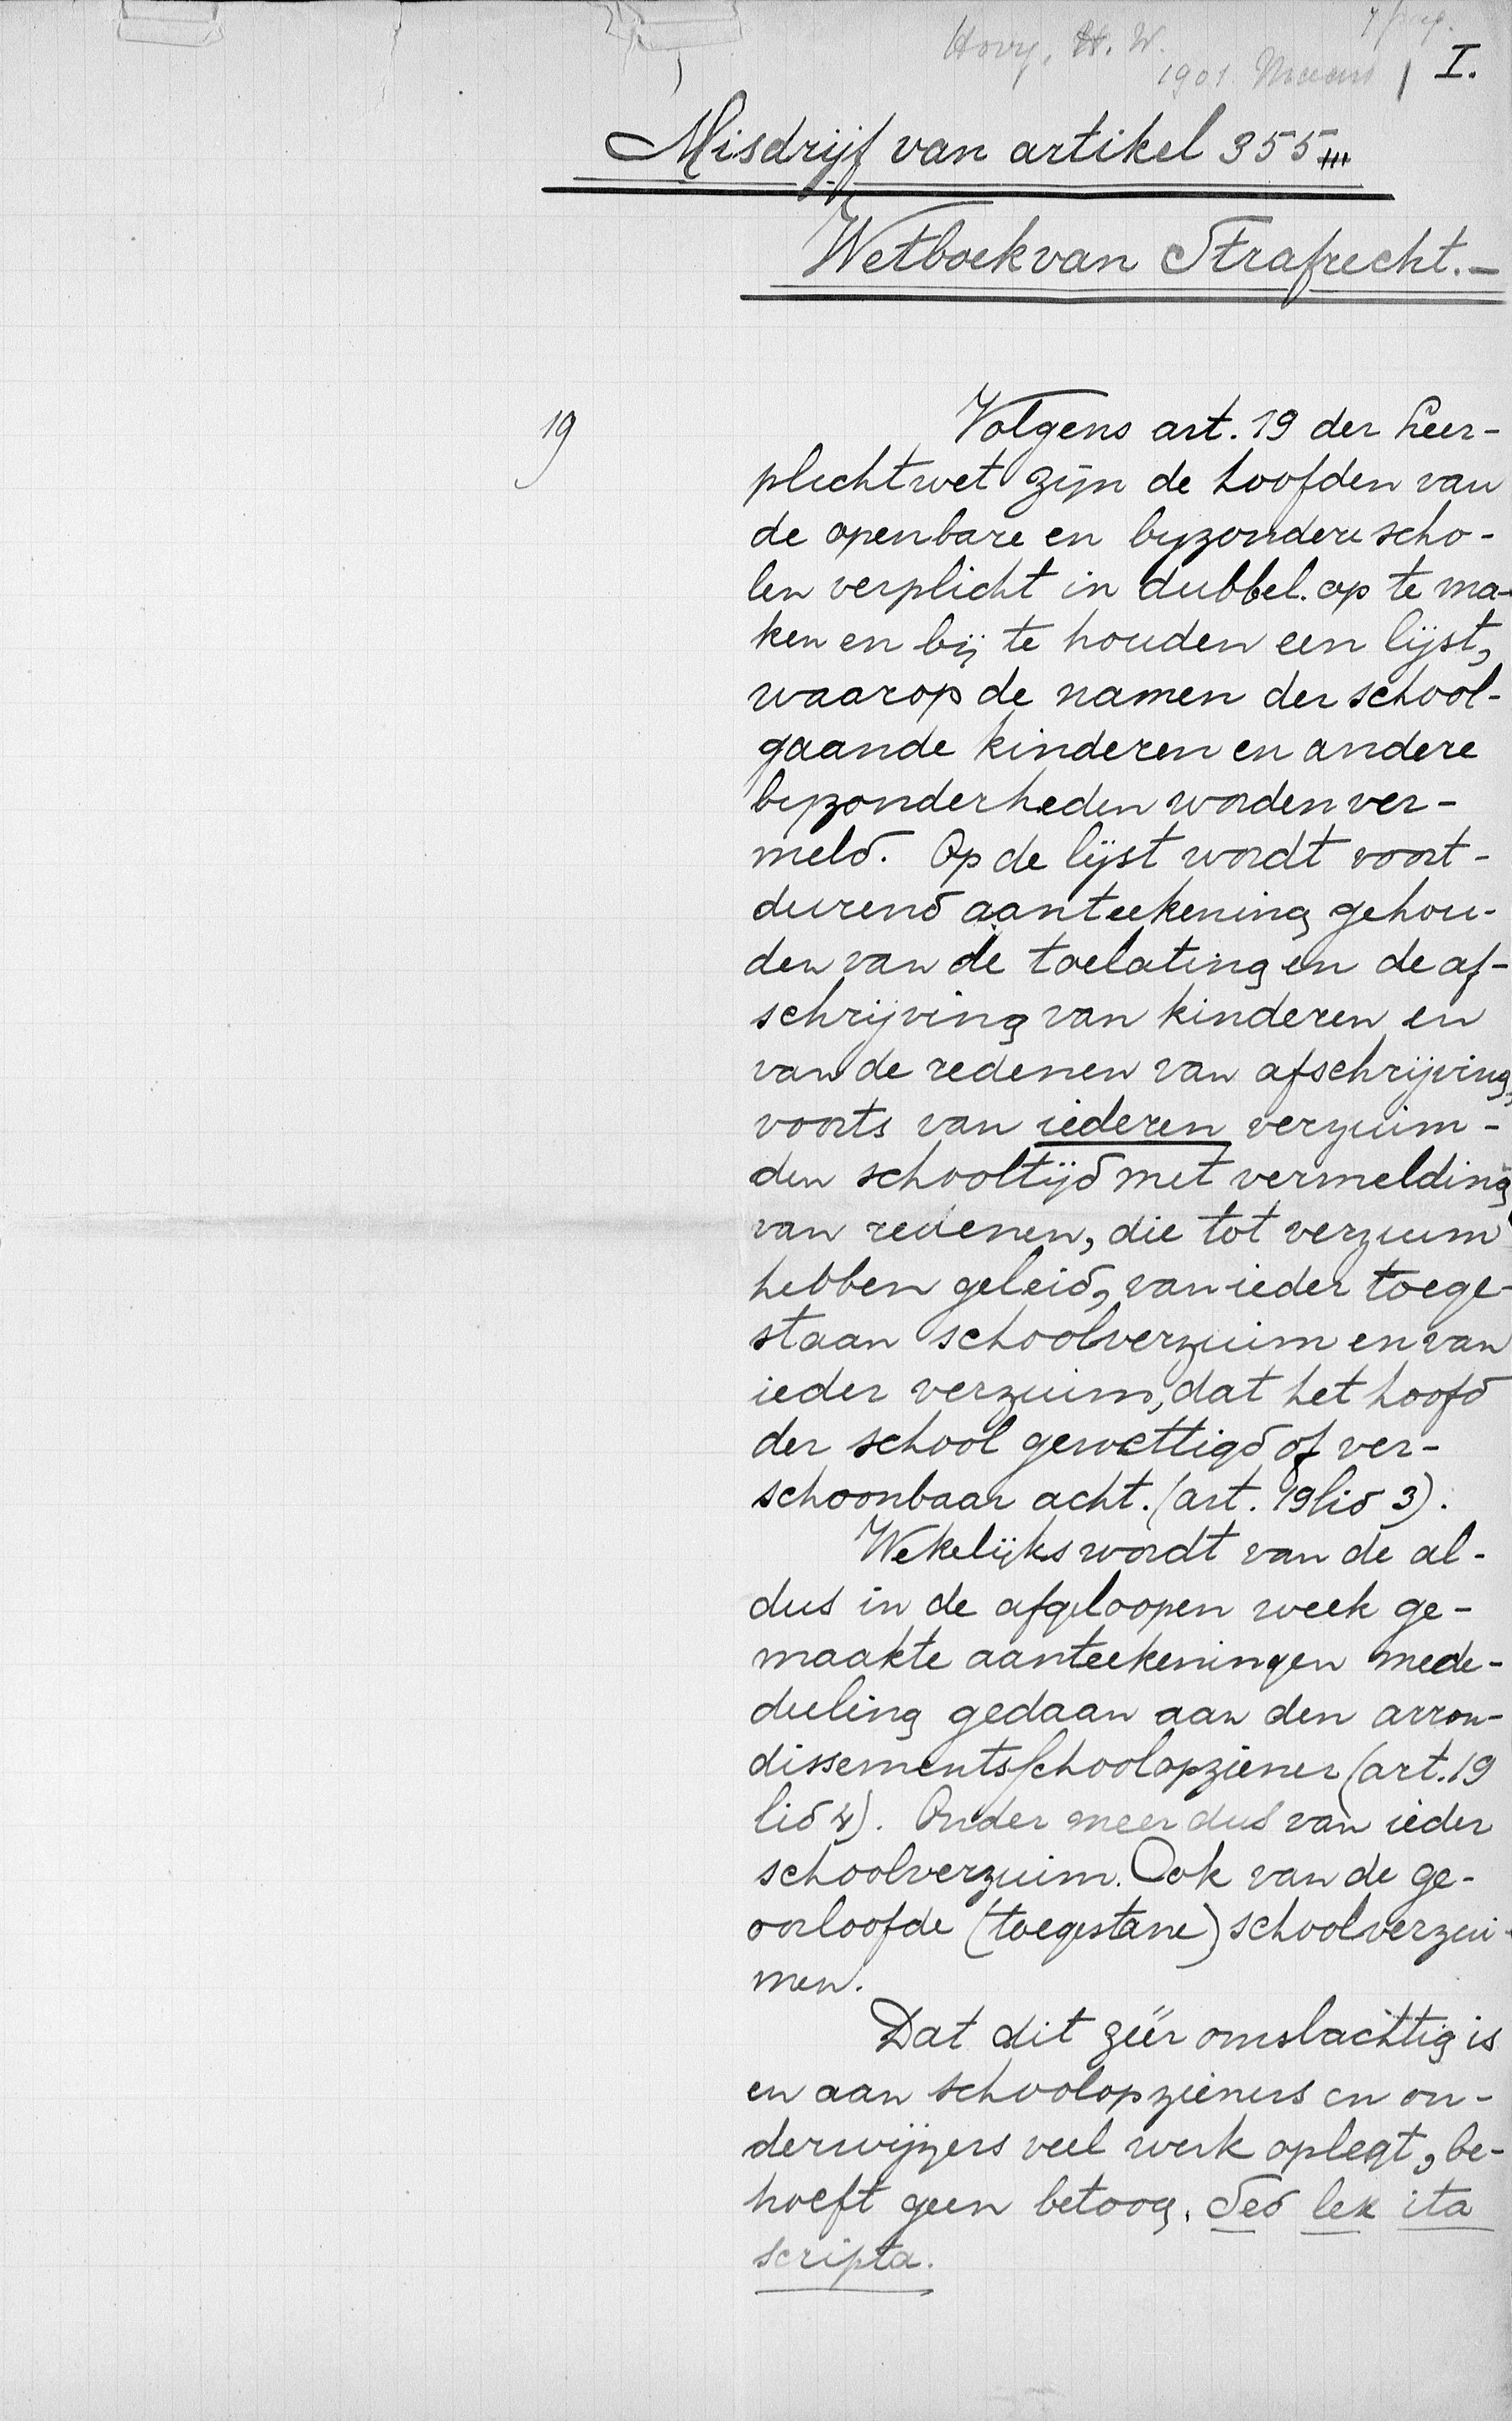 Hovy, H. W.
1901
I.
Misdrijf van artikel 355 III
Wetboek van Strafrecht.-
19
Volgens art. 19 der Leer-
plichtwet zijn de hoofden van
de openbare en byzondere scho-
len verplicht in dubbel op te ma-
ken en bij te houden een lijst,
waarop de namen der school-
gaande kinderen en andere
byzonderheden worden ver-
meld. Op de lijst wordt voort-
durend aanteekening gehou-
den van de toelating en de af-
schrijving van kinderen en
van de redenen van afschrijving,
voorts van iederen verzuim-
den schooltijd met vermelding
van redenen, die tot verzuim
hebben geleid, van ieder toege-
staan schoolverzuim en van
ieder verzuim, dat het hoofd
der school gewettigd of ver-
schoonbaar acht. (art. 19 lid 3).
Wekelijks wordt van de al-
dus in de afgeloopen week ge-
maakte aanteekeningen mede-
deeling gedaan aan den arron-
dissementsschoolopziener (art. 19
lid 4). Onder meer dus van ieder
schoolverzuim. Ook van de ge-
oorloofde (toegestane) schoolverzui-
men.
Dat dit zéér omslachtig is
en aan schoolopzieners en on-
derwijzers veel werk oplegt, be-
hoeft geen betoog. Sed lex ita
scripta.